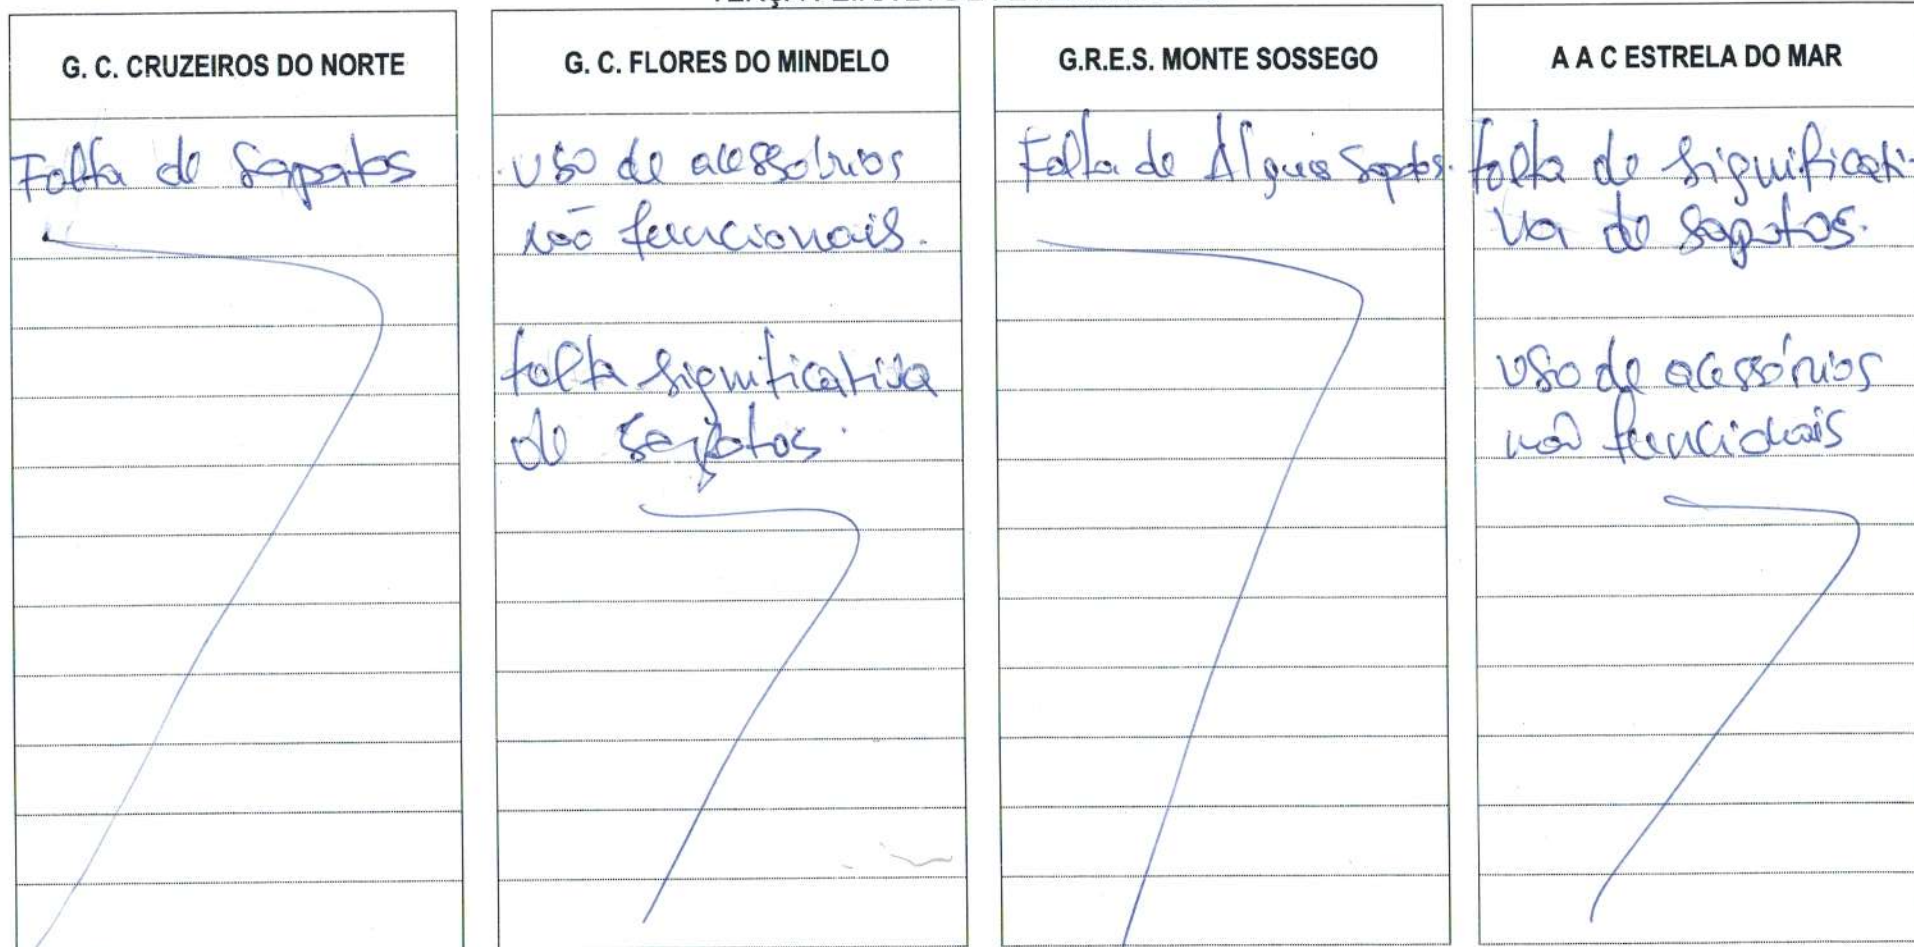 G. C. CRUZEIROS DO NORTE
Falta de Sapatos
G. C. FLORES DO MINDELO
uso de acessórios
não funcionais.
falta significativa
de sapatos.
G.R.E.S. MONTE SOSSEGO
Falta de Alguns Sapatos.
A A C ESTRELA DO MAR
falta de significati-
va de sapatos.
uso de acessórios
não funcionais